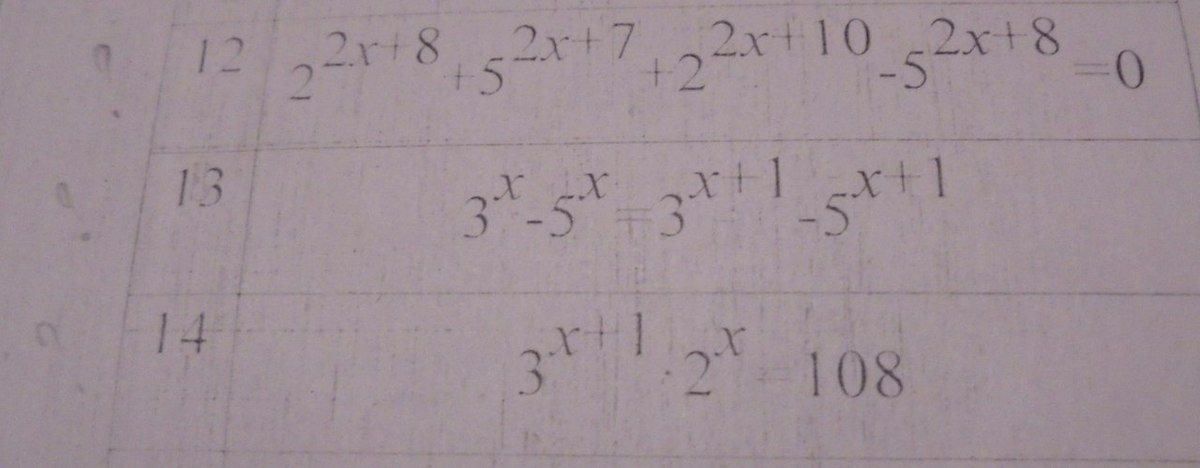 12 2^{2x+8}+5^{2x+7}+2^{2x+10}-5^{2x+8}=0
13 3^{x}-5^{x}=3^{x+1}-5^{x+1}
14 3^{x+1}·2^{x}=108